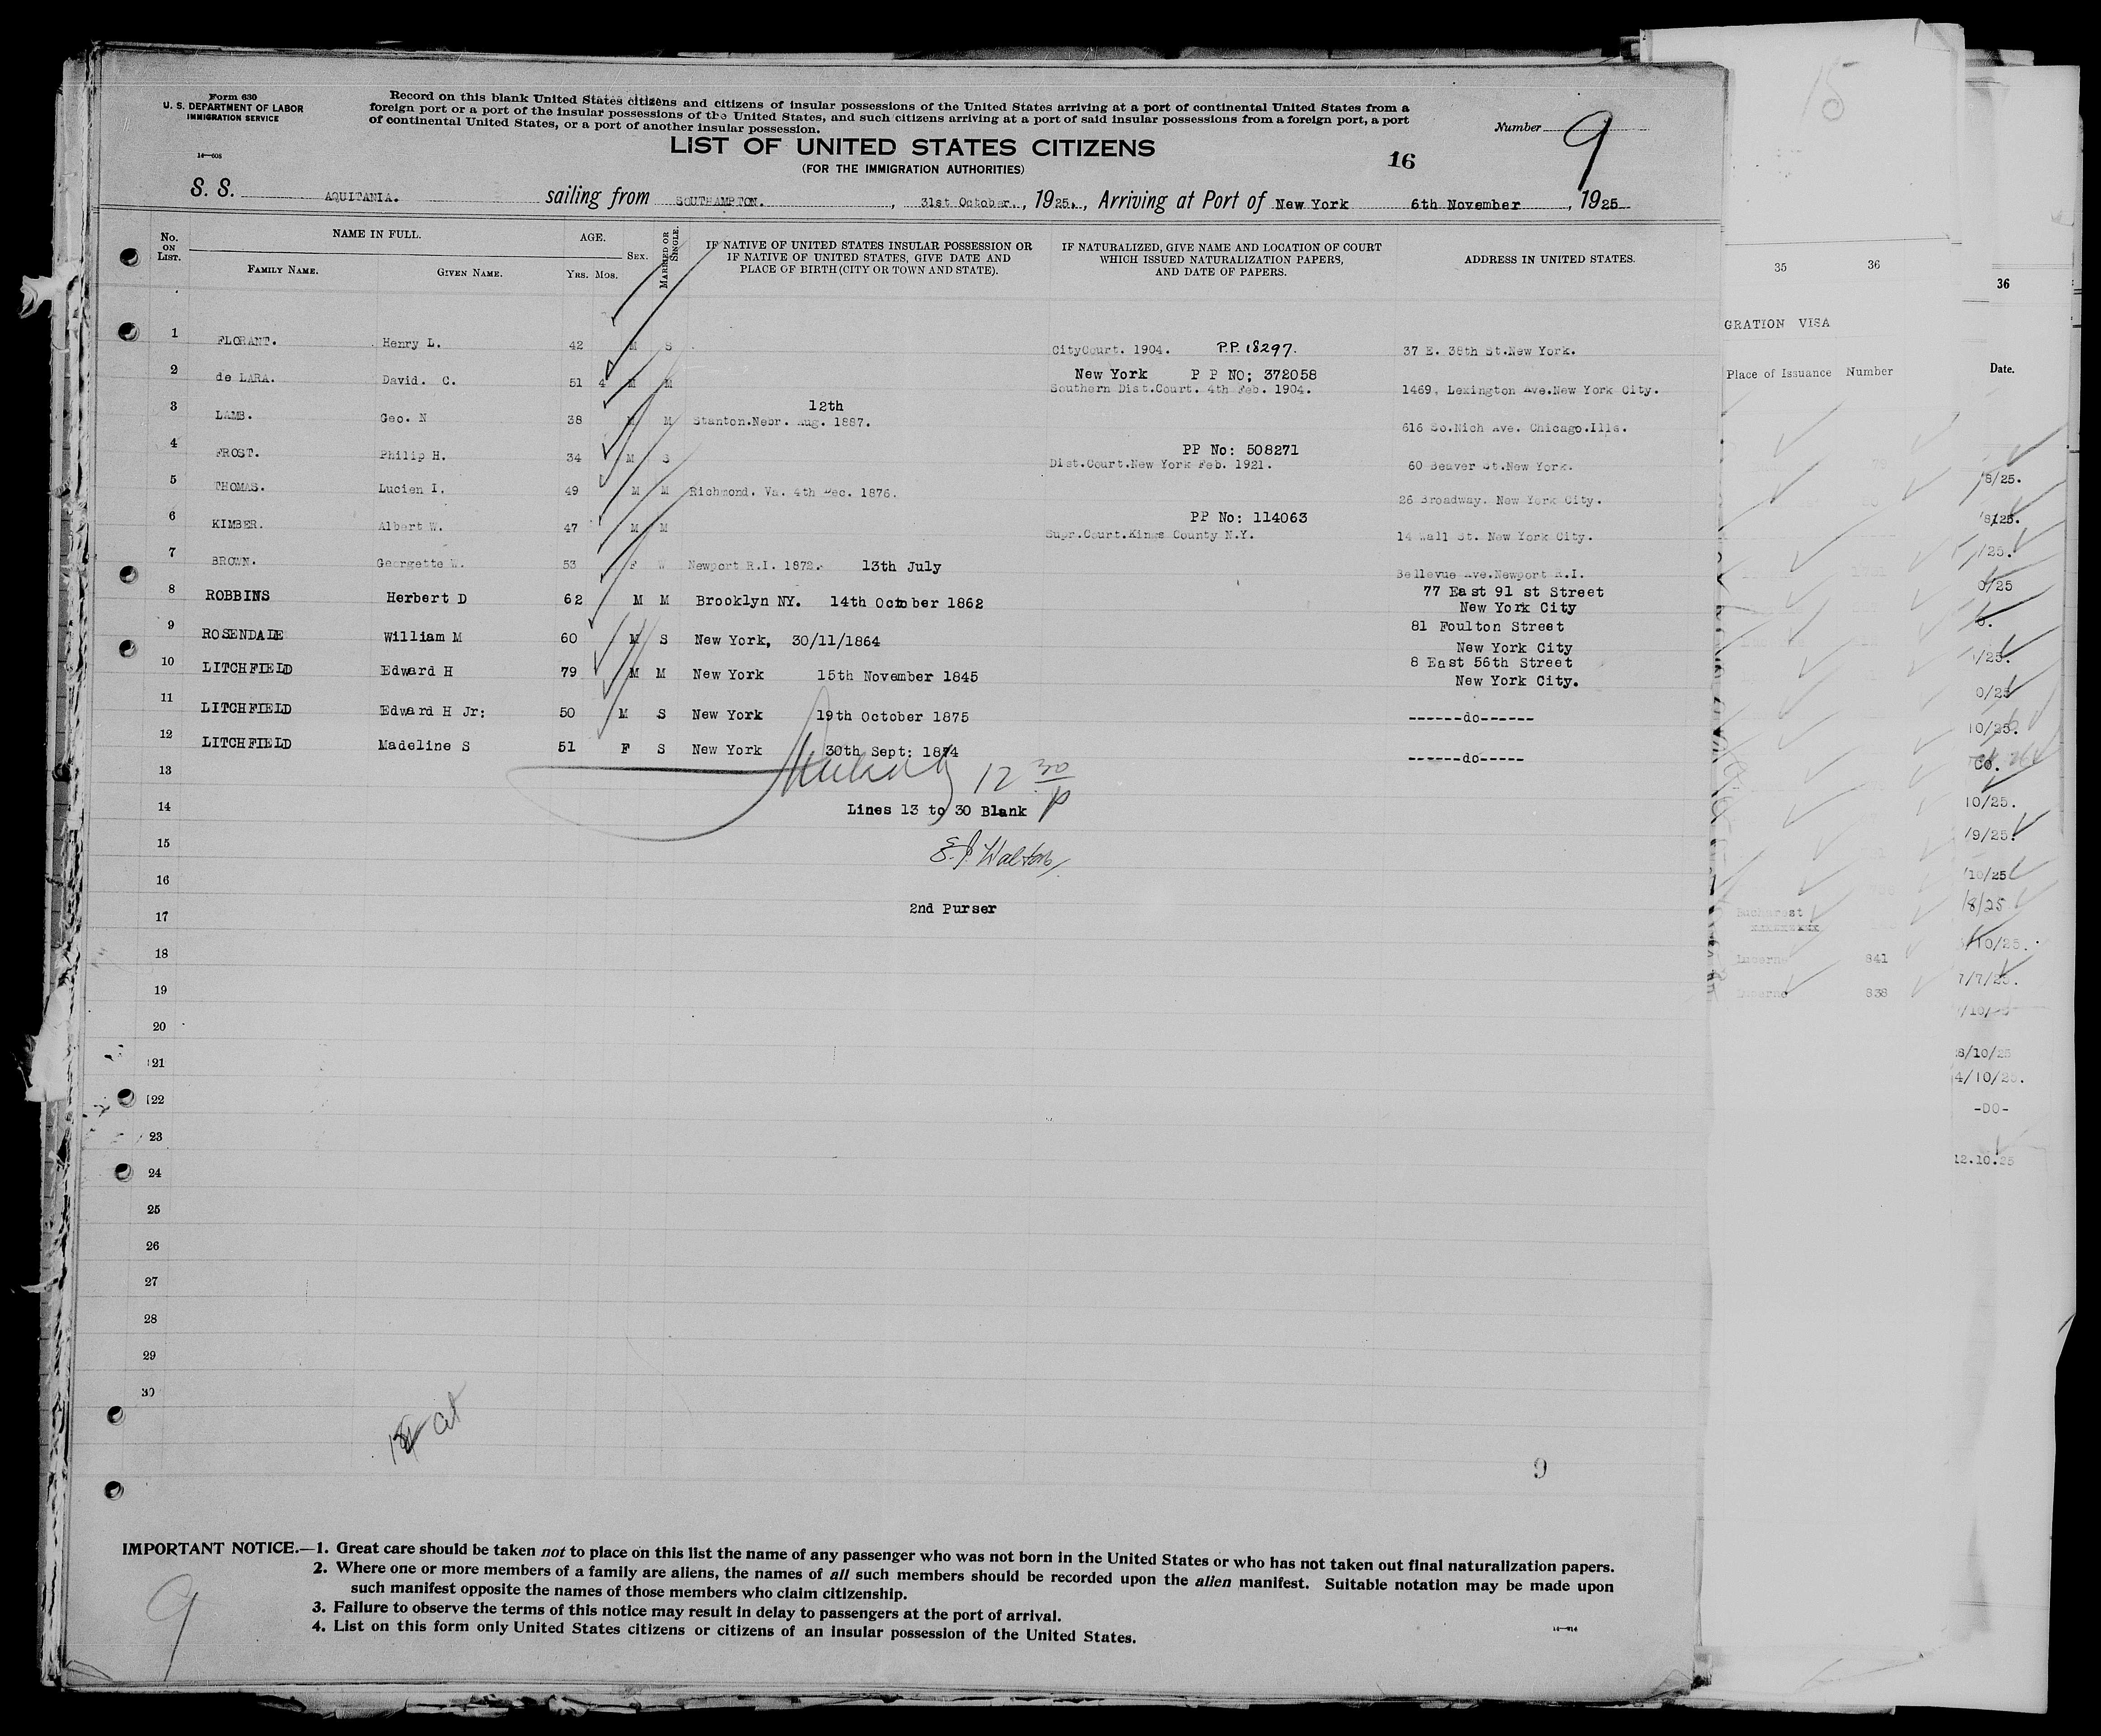 Form 630
U. S. DEPARTMENT OF LABOR
IMMIGRATION SERVICE
14—608
Record on this blank United States citizens and citizens of insular possessions of the United States arriving at a port of continental United States from a
foreign port or a port of the insular possessions of the United States, and such citizens arriving at a port of said insular possessions from a foreign port, a port
of continental United States, or a port of another insular possession.
Number 9
LIST OF UNITED STATES CITIZENS
(FOR THE IMMIGRATION AUTHORITIES)
16
S. S. AQUITANIA. sailing from SOUTHAMPTON. , 31st October. , 1925. , Arriving at Port of New York 6th November , 1925
No. ON LIST.
NAME IN FULL.
FAMILY NAME. GIVEN NAME.
AGE.
YRS. MOS.
SEX.
MARRIED OR SINGLE.
IF NATIVE OF UNITED STATES INSULAR POSSESSION OR
IF NATIVE OF UNITED STATES, GIVE DATE AND
PLACE OF BIRTH (CITY OR TOWN AND STATE).
IF NATURALIZED, GIVE NAME AND LOCATION OF COURT
WHICH ISSUED NATURALIZATION PAPERS,
AND DATE OF PAPERS.
ADDRESS IN UNITED STATES.
1 FLORANT. Henry L. 42 M S CityCourt. 1904. P.P. 18297. 37 E. 38th St.New York.
New York P P NO; 372058
2 de LARA. David. C. 51 4 M M Southern Dist.Court. 4th Feb. 1904. 1469, Lexington Ave.New York City.
12th
3 LAMB. Geo. N 38 M M Stanton.Nebr. Aug. 1887. 616 So.Mich Ave. Chicago.Ills.
PP No: 508271
4 FROST. Philip H. 34 M S Dist.Court.New York Feb. 1921. 60 Beaver St.New York.
5 THOMAS. Lucien I. 49 M M Richmond. Va. 4th Dec. 1876. 26 Broadway. New York City.
PP No: 114063
6 KIMBER. Albert W. 47 M M Supr.Court.Kings County N.Y. 14 Wall St. New York City.
7 BROWN. Georgette W. 53 F W Newport R.I. 1872. 13th July Bellevue Ave.Newport R.I.
8 ROBBINS Herbert D 62 M M Brooklyn NY. 14th October 1862 77 East 91 st Street
New York City
9 ROSENDALE William M 60 M S New York, 30/11/1864 81 Foulton Street
New York City
10 LITCHFIELD Edward H 79 M M New York 15th November 1845 8 East 56th Street
New York City.
11 LITCHFIELD Edward H Jr: 50 M S New York 19th October 1875 ------do------
12 LITCHFIELD Madeline S 51 F S New York 30th Sept: 1874 ------do-----
13
12 30/P
14 Lines 13 to 30 Blank
15
E.J. Walton
16
17 2nd Purser
18
19
20
21
22
23
24
25
26
27
28
29
30
9
IMPORTANT NOTICE.—1. Great care should be taken not to place on this list the name of any passenger who was not born in the United States or who has not taken out final naturalization papers.
2. Where one or more members of a family are aliens, the names of all such members should be recorded upon the alien manifest. Suitable notation may be made upon
such manifest opposite the names of those members who claim citizenship.
3. Failure to observe the terms of this notice may result in delay to passengers at the port of arrival.
4. List on this form only United States citizens or citizens of an insular possession of the United States.
9
15
35 36
GRATION VISA
Place of Issuance Number
Bucharest
Lucerne 841
Lucerne 838
36
Date.
8/25.
/25.
0/25
/25.
0/25
10/25
Co.
10/25.
/9/25.
/10/25
/8/25
/10/25.
7/7/25.
8/10/25
4/10/25.
-DO-
12.10.25